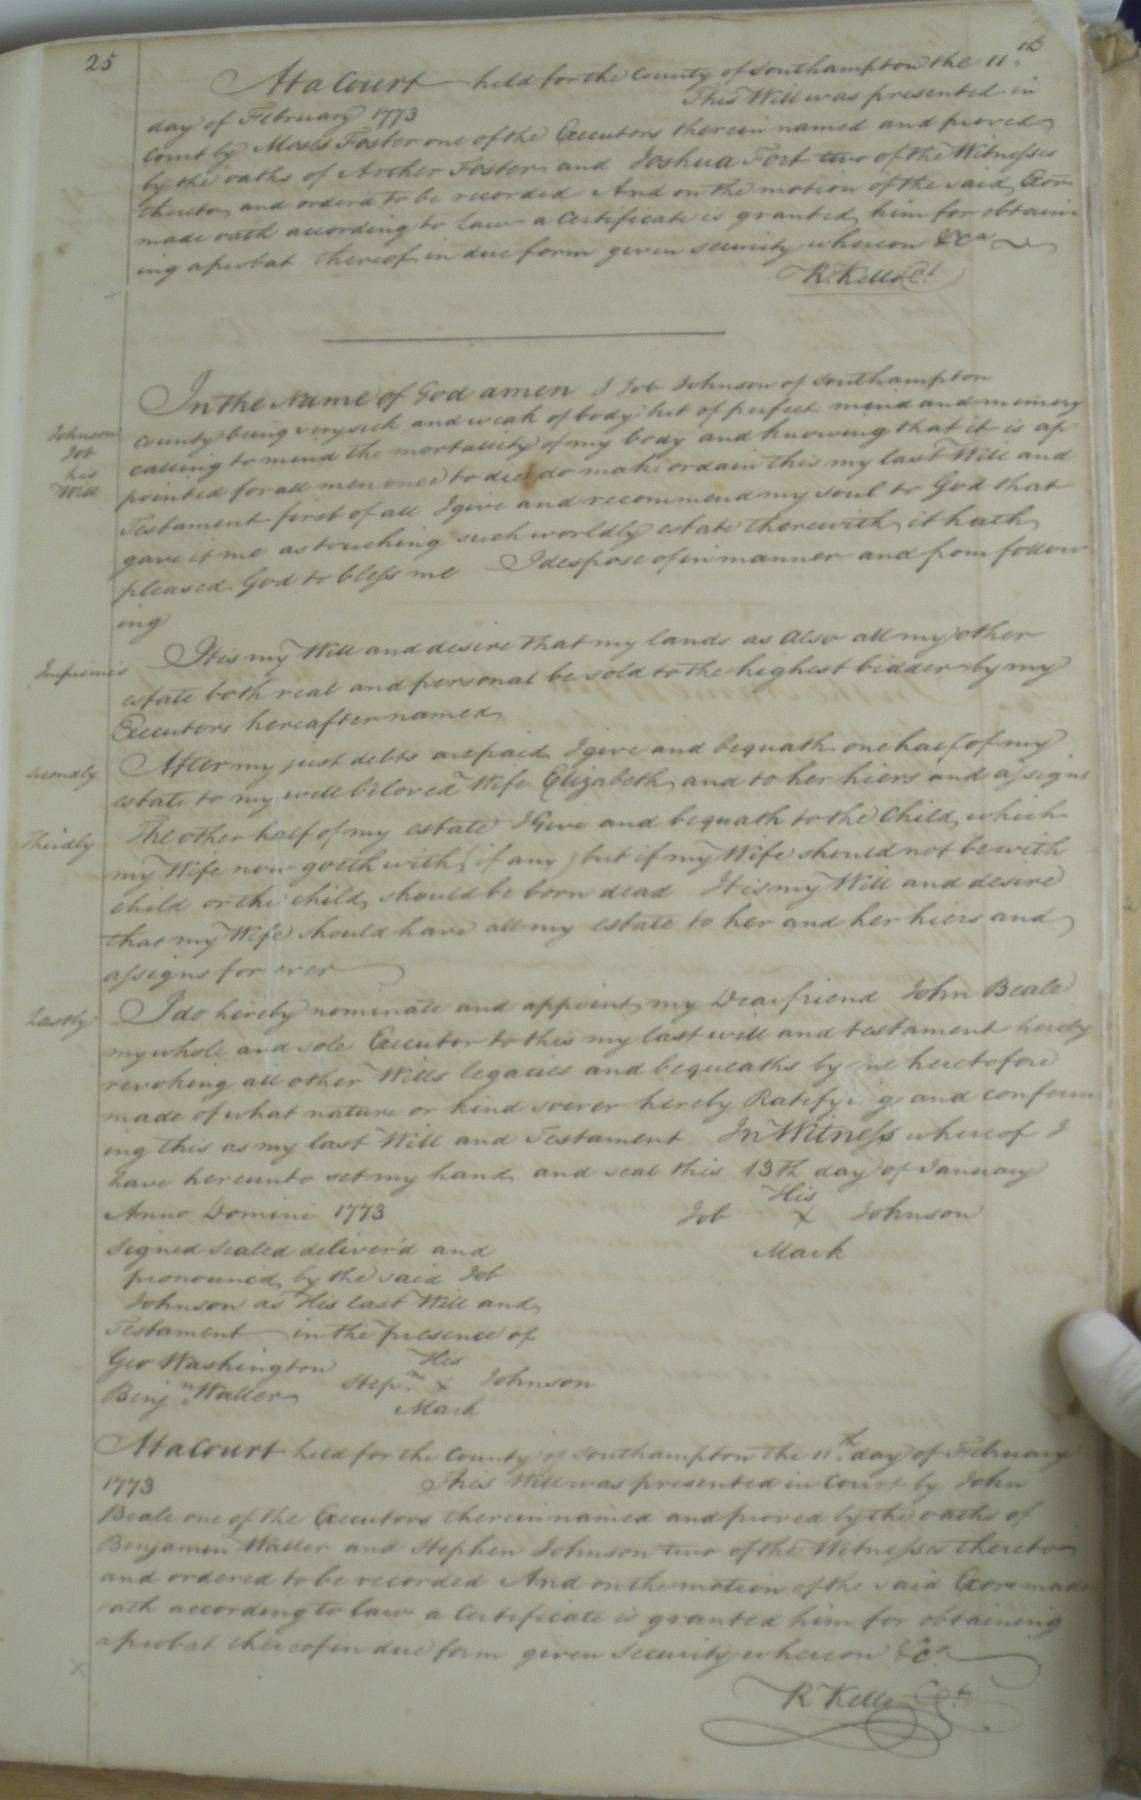 25
At a Court held for the County of Southampton the 11th
day of February 1773 This Will was presented in
Court by Moses Foster one of the Executors therein named and proved
by the oaths of Arther Foster and Joshua Fort two of the Witnesses
thereto and orderd to be recorded And on the motion of the said Exor
made oath according to Law a Certificate is granted him for obtain
ing a probat thereof in due form given security whereon &ca
R. Kello Ct
Johnson
Job
his
Will
In the Name of God amen I Job Johnson of Southampton
County being very sick and weak of body but of perfect mind and memory
calling to mind the mortallity of my body and knowing that it is ap
pointed for all men once to die do make ordain this my last Will and
Testament first of all I give and recommend my soul to God that
gave it me as touching such worldly estate therewith it hath
pleased God to bless me I despose of in manner and from follow
ing
Imprimis It is my Will and desire that my lands as also all my other
estate both real and personal be sold to the highest bidder by my
Executors hereafter named
secondly After my just debts are paid I give and bequath one half of my
estate to my well beloved Wife Elizabeth and to her hiers and assigns
Thirdly The other half of my estate I Give and bequath to the Child which
my Wife now goeth with (if any) but if my Wife should not be with
child or the child should be born dead It is my Will and desire
that my Wife should have all my estate to her and her hiers and
assigns for ever
Lastly I do hereby nominate and appoint my Dear friend John Beale
my whole and sole Executor to this my last will and testament hereby
revoking all other Wills legacies and bequeaths by me heretofore
made of what nature or kind soever hereby Ratifying and confirm
ing this as my last Will and Testament In Witness whereof I
have hereunto set my hand and seal this 13th day of January
Anno Domini 1773
His
Job x Johnson
Mark
Signed Sealed deliver'd and
pronounced by the said Job
Johnson as His last Will and
Testament in the presence of
Geo Washington
His
Benjn Waller Stepn x Johnson
Mark
At a Court held for the County of Southampton the 11th day of February
1773 This Will was presented in Court by John
Beale one of the Executors therein named and proved by the oaths of
Benjamin Waller and Stephen Johnson two of the Witnesses thereto
and ordered to be recorded And on the motion of the said Exor made
oath according to law a Certificate is granted him for obtaining
a probat thereof in due form given Security whereon &ca
R Kello Ct